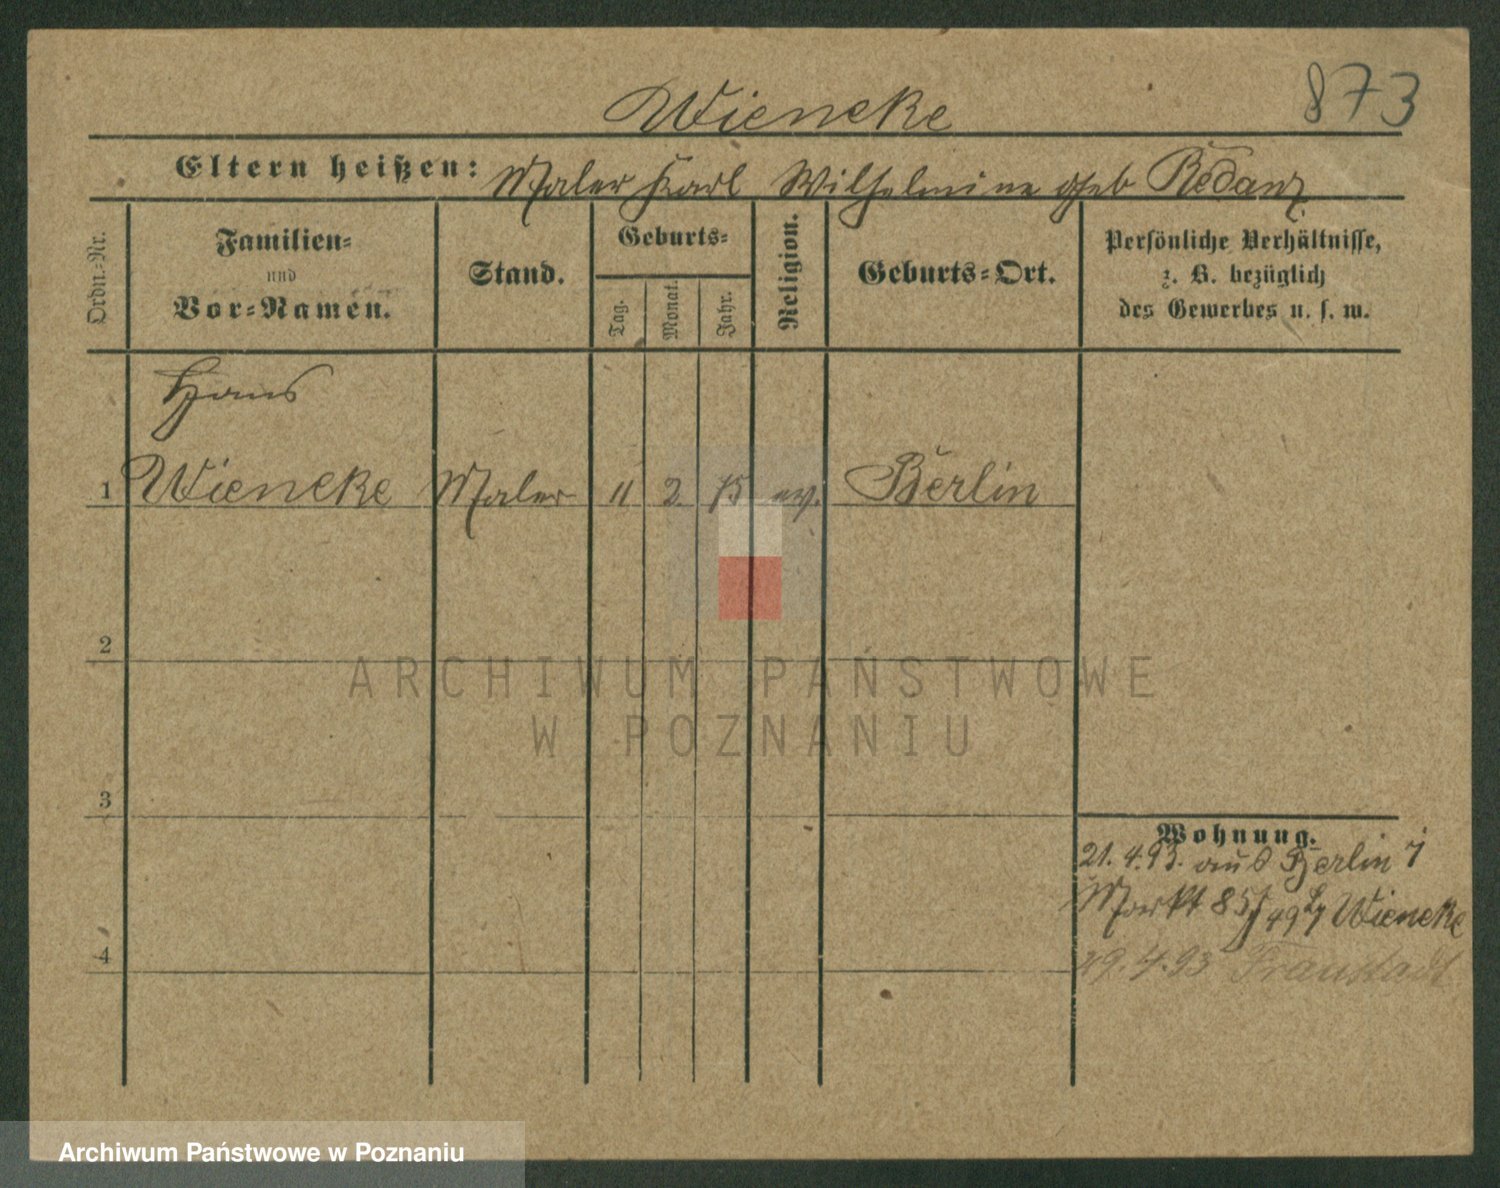 873
Wiencke
Eltern heißen: Maler Karl Wilhelmine geb Redanz
Ordn.-Nr.
Familien-
und
Vor-Namen.
Stand.
Geburts-
Tag.
Monat.
Jahr.
Religion.
Geburts-Ort.
Persönliche Verhältnisse,
z. B. bezüglich
des Gewerbes u. s. w.
Hans
1 Wiencke Maler 11 2. 75 ev. Berlin
2
3
4
Wohnung.
21.4.93. aus Berlin
Markt 85 Wiencke
29.4.93 Fraustadt
ARCHIWUM PAŃSTWOWE
W POZNANIU
Archiwum Państwowe w Poznaniu